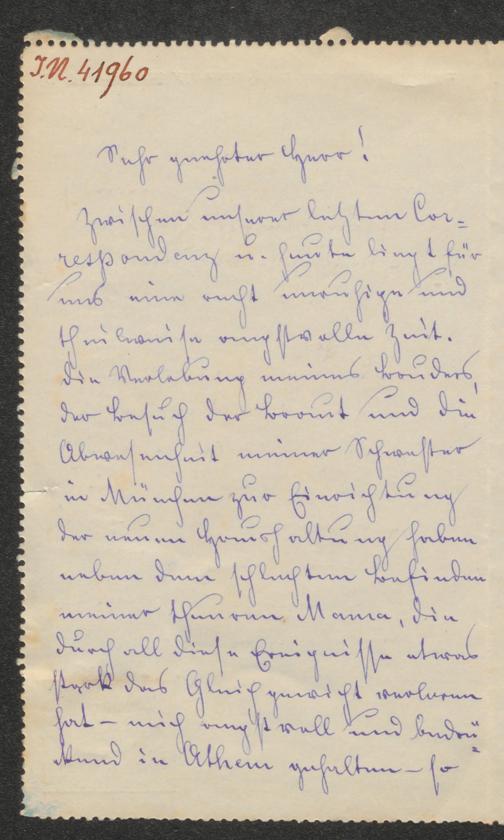 J.N. 41960
Sehr geehrter Herr!
Zwischen unserer letzten Cor=
respondenz u. heute liegt für
uns eine recht unruhige und
theilweise angstvolle Zeit.
Die Verlobung meines Bruders,
der Besuch der Braut und die
Abwesenheit meiner Schwester
in München zur Einrichtung
der neuen Haushaltung haben
neben dem schlechten Befinden
meiner theuren Mama, die
durch all diese Ereignisse etwas
stark das Gleichgewicht verloren
hat – mich angstvoll und bedrü=
ckend in Athem gehalten – so